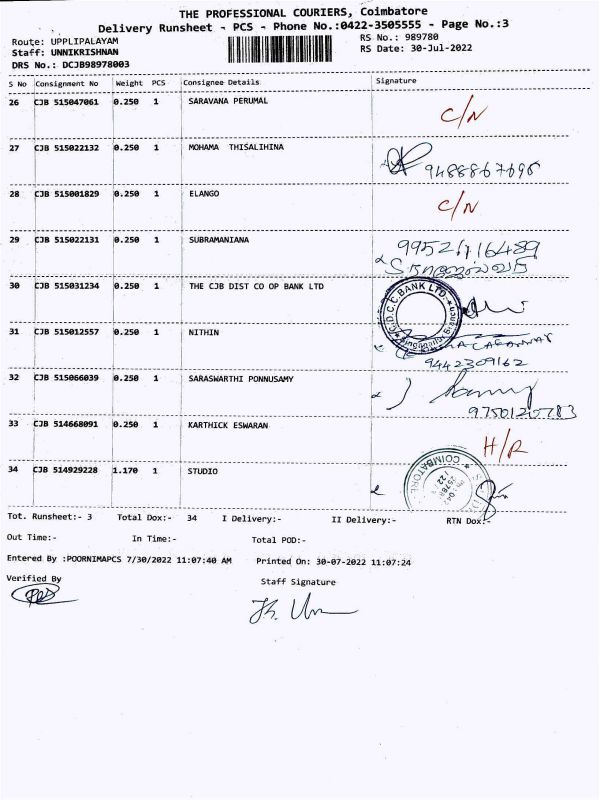 THE PROFESSIONAL COURIERS, Coimbatore
Delivery Runsheet - PCS - Phone No.:0422-3505555 - Page No.:3
Route: UPPLIPALAYAM
Staff: UNNIKRISHNAN
DRS No.: DCJB98978003
RS No.: 989780
RS Date: 30-Jul-2022
S No Consignment No Weight PCS Consignee Details Signature
26 CJB 515047061 0.250 1 SARAVANA PERUMAL C/N
27 CJB 515022132 0.250 1 MOHAMA THISALIHINA 9488867698
28 CJB 515001829 0.250 1 ELANGO C/N
29 CJB 515022131 0.250 1 SUBRAMANIANA
30 CJB 515031234 0.250 1 THE CJB DIST CO OP BANK LTD C.D.C.C BANK LTD.
31 CJB 515012557 0.250 1 NITHIN
9442309162
32 CJB 515066039 0.250 1 SARASWARTHI PONNUSAMY
33 CJB 514668091 0.250 1 KARTHICK ESWARAN H/R
34 CJB 514929228 1.170 1 STUDIO COIMBATORE
Tot. Runsheet:- 3 Total Dox:- 34 I Delivery:- II Delivery:- RTN Dox:-
Out Time:- In Time:- Total POD:-
Entered By :POORNIMAPCS 7/30/2022 11:07:40 AM Printed On: 30-07-2022 11:07:24
Verified By
Staff Signature